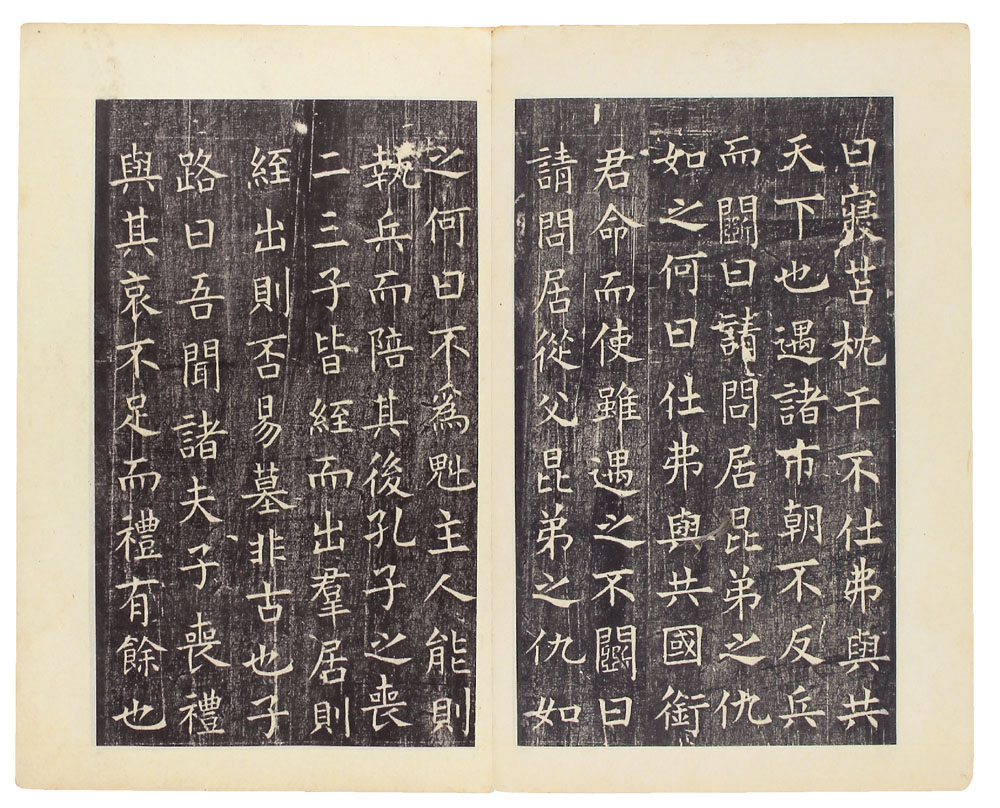 曰寢苫枕干不仕弗與共
天下也遇諸市朝不反兵
而鬬曰請問居昆弟之仇
如之何曰仕弗與共國銜
君命而使雖遇之不鬬曰
請問居從父昆弟之仇如
之何曰不爲魁主人能則
執兵而陪其後孔子之喪
二三子皆絰而出羣居則
絰出則否易墓非古也子
路曰吾聞諸夫子喪禮
與其哀不足而禮有餘也